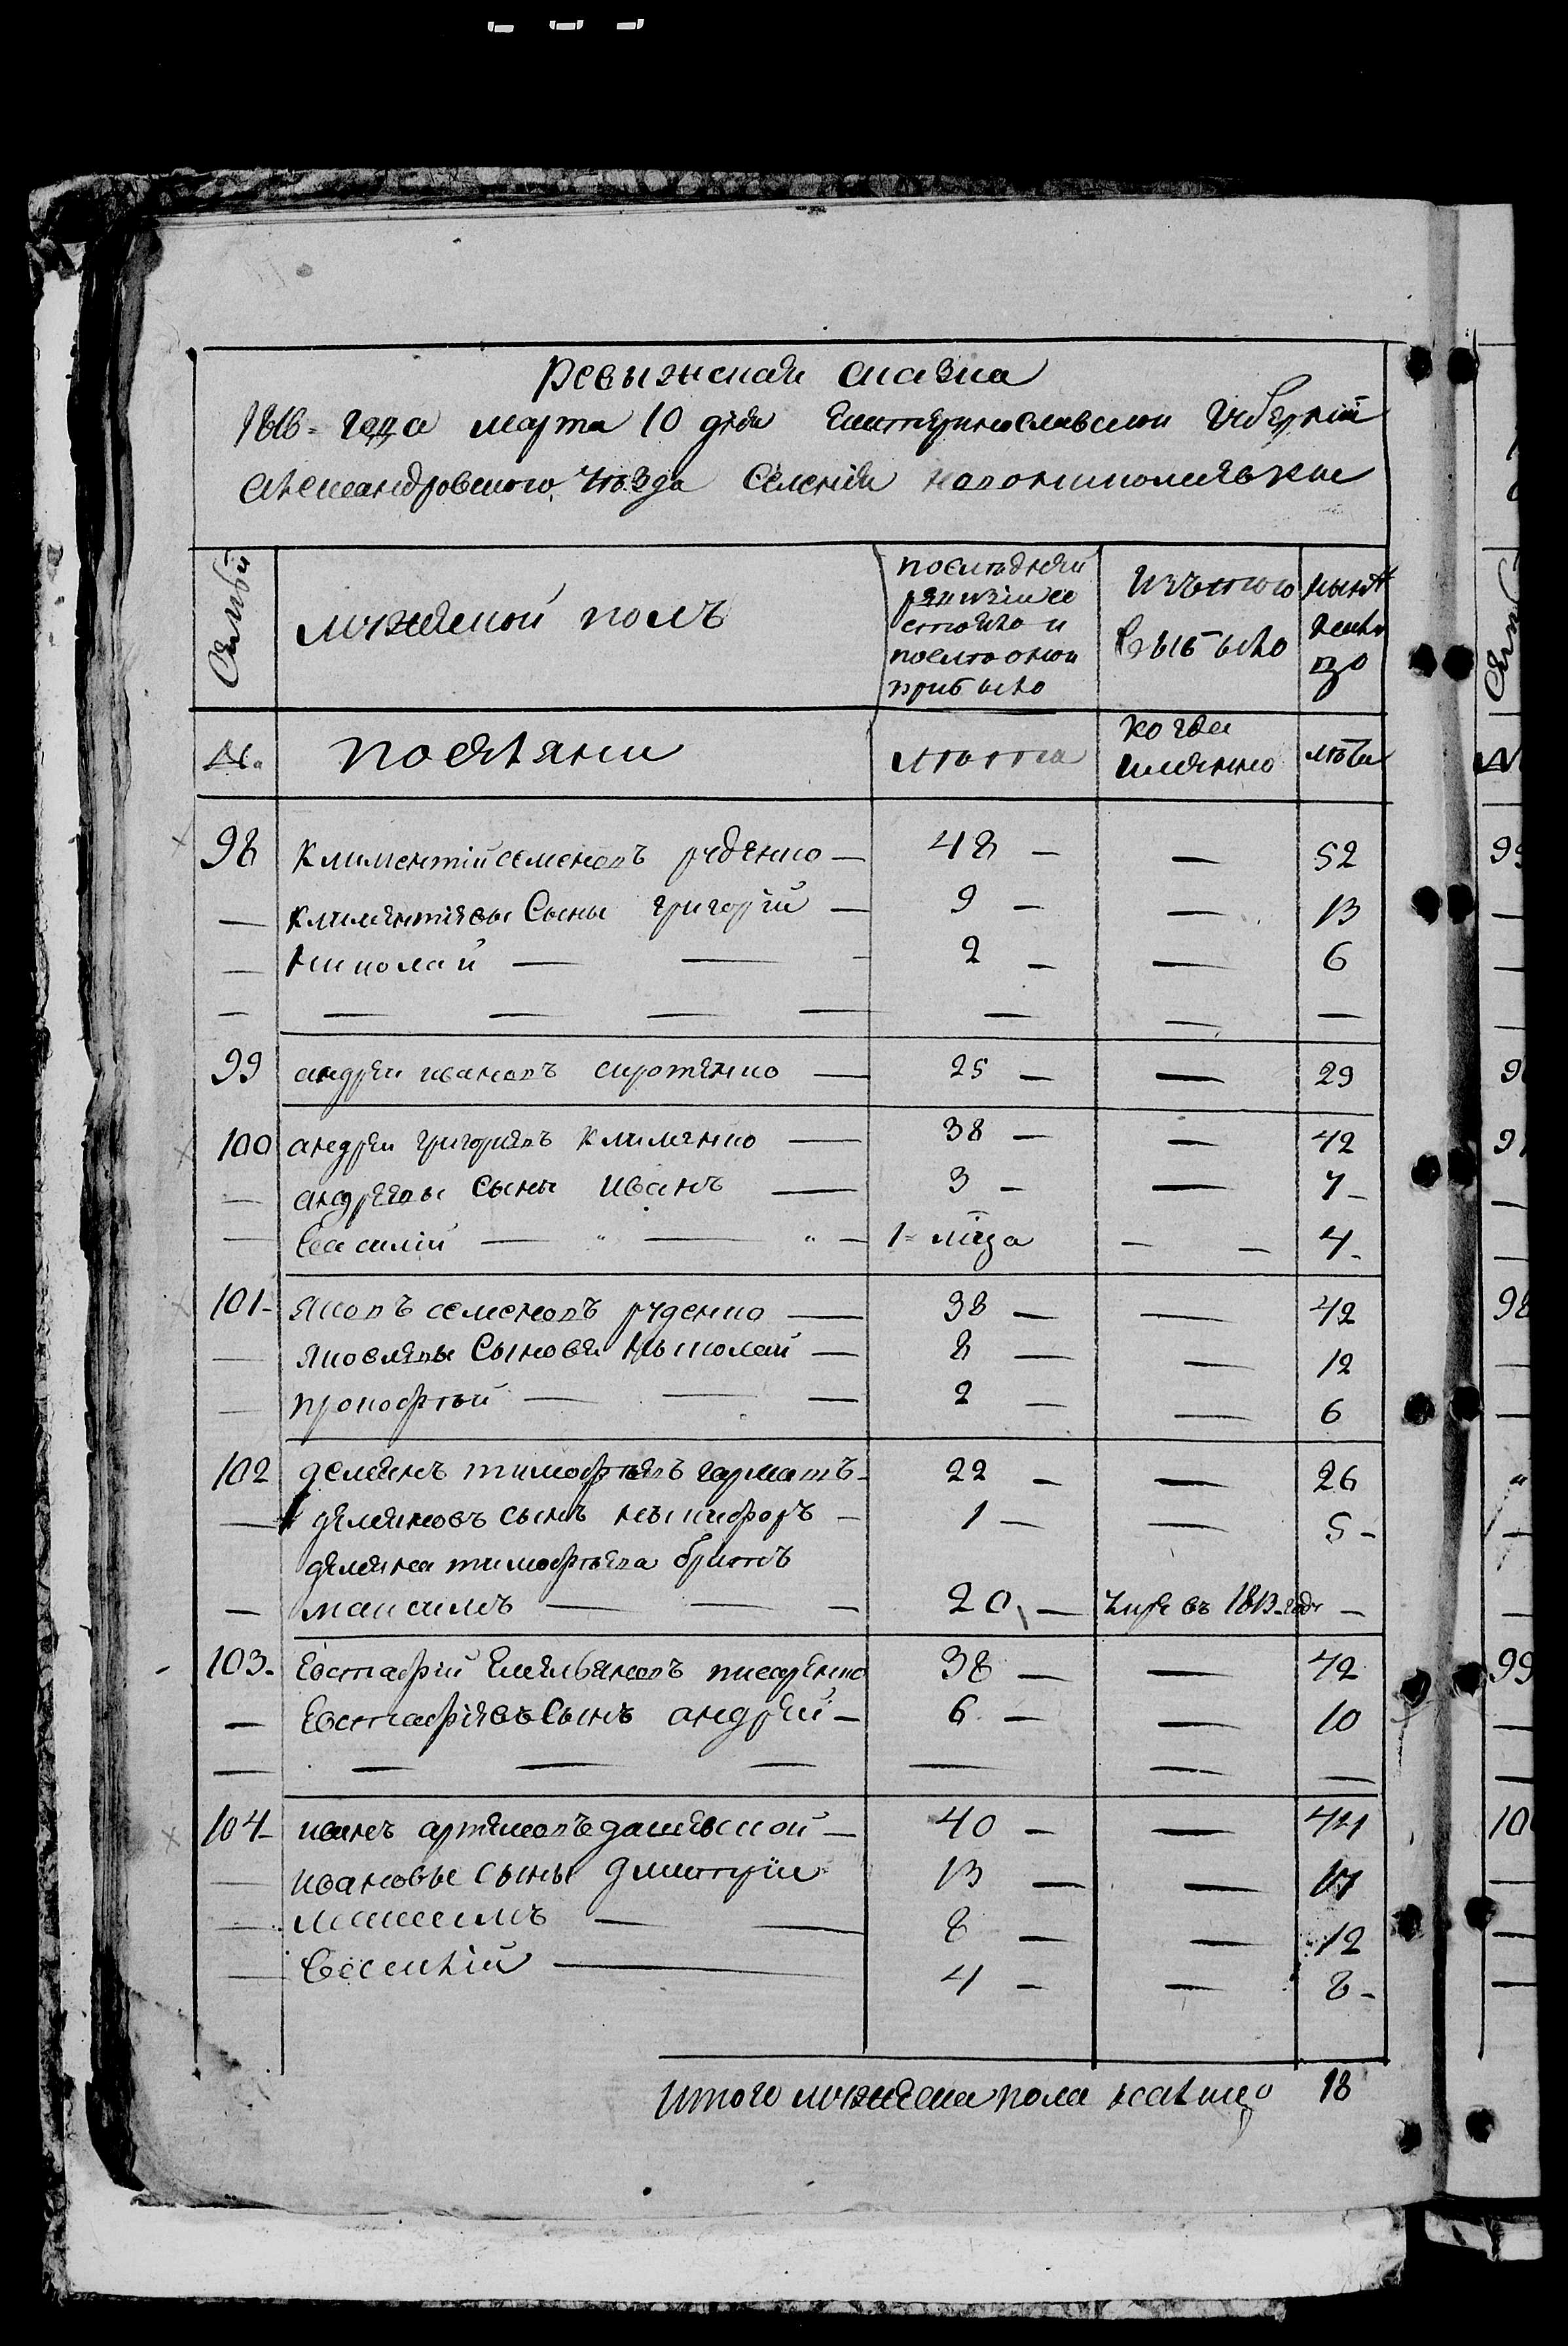 Ревыжская сказка
1816 = года марта 10 дня Екатеринославской Губернiи
Александровского уѣзда Селенiя
Семьи
мужеской полъ
последней
ревизiи со
стояло и
после оной
прибыло
Изътого
выбыло
нынѣ
налицо
№.
поселяни
лѣта
когда
имянно
лѣта
98 климентiй семеновъ руденко — 48 — — 52
— климянтiявы Сыны григорiй — 9 — — 13
— николай — — - 2 — — 6
— — — — — — — —
99 андреи ивановъ сиротенко — 25 — — 29
100 андреи григорявъ клименко — 38 — — 42
— андреявы сыны иванъ — 3 — — 7 -
— василiй — " — " — 1 = мѣсяца — — 4 -
101 - яковъ семеновъ руденко — 38 — — 42
— яковлявы Сыновья николай — 8 — — 12
— прокофѣй — — — 2 — — 6
102 демянъ тимофѣявъ гарматъ - 22 — — 26
— демяновъ сынъ никифоръ — 1 — — 5 -
демяна тимофѣява братъ
— максимъ — — — 20 — умре въ 1813 году —
103 - Евстафiй Емельяновъ писаренко 38 — — 42
— Евстафiявъ Сынъ андрей — 6 — — 10
— — — — — — —
104 - иванъ артямовъ дашевской — 40 — — 44
— ивановы сыны дмитрiи 13 — — 17
— максимъ — — 8 — — 12
— василiй — 4 — — 8 -
Итого мужеска пола налицо 18